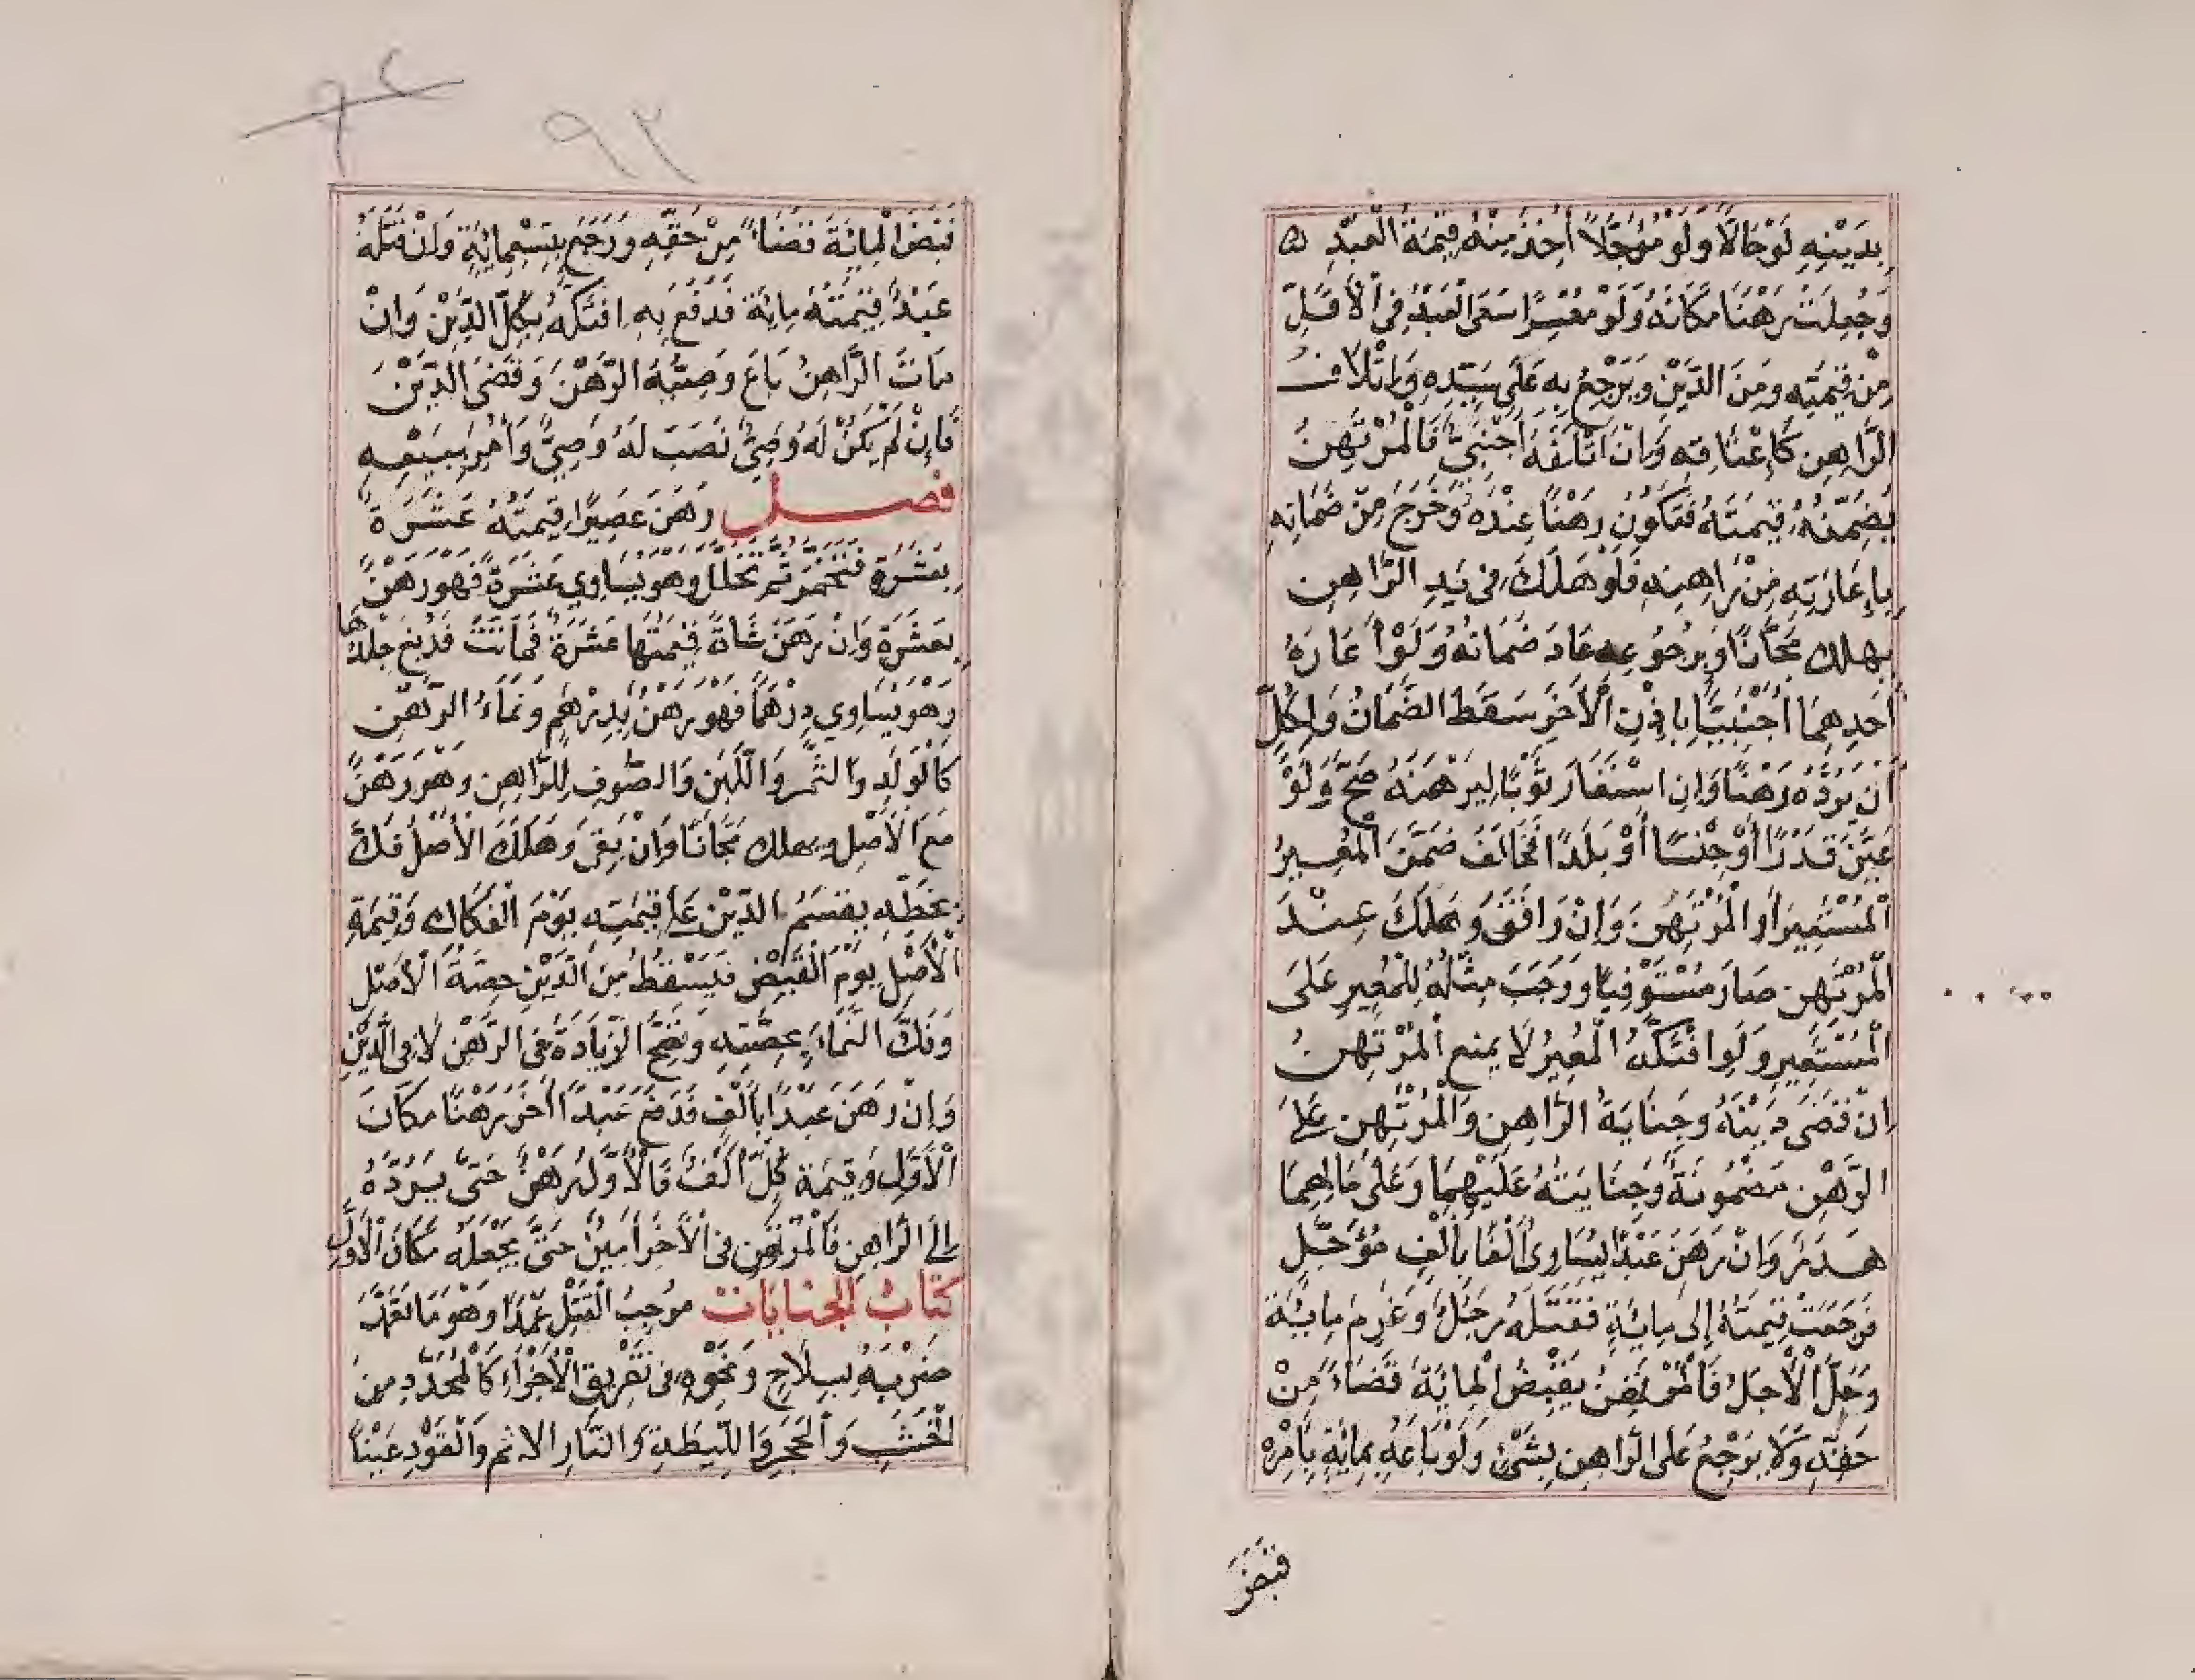 بِدَيْنِهِ لَوْ حَالًّا وَلَوْ مُؤَجَّلاً أُخِذَ مِنْهُ قِيْمَةُ الْعَبْدِ
وَجُعِلَتْ رَهْنًا مَكَانَهُ وَلَوْ مُعْسِرًا سَعَى الْعَبْدُ فِي الْأَقَلِّ
مِنْ قِيْمَتِهِ وَمِنَ الدَّيْنِ وَيَرْجِعُ بِهِ عَلَى سَيِّدِهِ وَإِتْلَافُ
الرَّاهِنِ كَإِعْتَاقِهِ وَإِنْ أَتْلَفَهُ أَجْنَبِيٌّ فَالْمُرْتَهِنُ
يُضَمِّنُهُ قِيْمَتَهُ فَتَكُونُ رَهْنًا عِنْدَهُ وَخَرَجَ مِنْ ضَمَانِهِ
بِإِعَارَتِهِ مِنْ رَاهِنِهِ فَلَوْ هَلَكَ فِي يَدِ الرَّاهِنِ
يهلك مَجَّانًا وَبِرُجُوعِهِ عَادَ ضَمَانُهُ وَلَوْ أَعَارَهُ
أَحَدِهِمَا أَجْنَبِيًّا بِإِذْنِ الْآخَرِ سَقَطَ الضَّمَانُ وَلِكُلٍّ
أَنْ يَرُدَّهُ رَهْنًا وَإِنِ اسْتَعَارَ ثَوْبًا لِيَرْهَنَهُ صَحَّ وَلَوْ
عَيَّنَ قَدْرًا أَوْ جِنْسًا أَوْ بَلَدًا فَخَالَفَ ضَمَّنَ الْمُعِيرُ
الْمُسْتَعِيرَ أَوِ الْمُرْتَهِنَ وَإِنْ وَافَقَ وَهَلَكَ عِنْدَ
الْمُرْتَهِنِ صَارَ مُسْتَوْفِيًا وَوَجَبَ مِثْلُهُ لِلْمُعِيرِ عَلَى
الْمُسْتَعِيرِ وَلَوِ افْتَكَّهُ الْمُعِيرُ لَا يمنع الْمُرْتَهِنُ
إِنْ قَضَى دَيْنَهُ وَجِنَايَةُ الرَّاهِنِ وَالْمُرْتَهِنِ عَلَى
الرَّهْنِ مَضْمُونَةٌ وَجِنَايَتُهُ عَلَيْهِمَا وَعَلَى مَالِهِمَا
هَدَرٌ وَإِنْ رَهَنَ عَبْدًا يُسَاوِي أَلْفًا بِأَلْفٍ مُؤَجَّلٍ
فَرَجَعَتْ قِيمَتُهُ إِلَى مِائَةٍ فَقَتَلَهُ رَجُلٌ وَغَرِمَ مِائَةً
وَحَلَّ الْأَجَلُ فَالْمُرْتَهِنُ يَقْبِضُ الْمِائَةَ قَضَاءً مِنْ
حَقِّهِ وَلَا يَرْجِعُ عَلَى الرَّاهِنِ بِشَيْءٍ وَلَوْ بَاعَهُ بِمِائَةٍ بِأَمْرِهِ
قبض
٩٢
قَبَضَ الْمِائَةَ قَضَاءً مِنْ حَقِّهِ وَرَجَعَ بِتِسْعِمِائَةٍ وَإِنْ قَتَلَهُ
عَبْدٌ قِيْمَتُهُ مِائَة فَدُفِعَ بِهِ افْتَكَّهُ بِكُلِّ الدَّيْنِ وَإِنْ
مَاتَ الرَّاهِنُ بَاعَ وَصِيُّهُ الرَّهْنَ وَقَضَى الدَّيْنَ
فَإِنْ لَمْ يَكُنْ لَهُ وَصِيٌّ نَصَبَ لَهُ وَصِيٌّ وَأُمِرَ بِبَيْعِهِ
فصل رَهَنَ عَصِيرًا قِيمَتُهُ عَشَرَةٌ
بِعَشَرَةٍ فَتَخَمَّرَ ثُمَّ تَخَلَّلَ وَهُوَ يُسَاوِي عَشَرَةً فَهُوَ رَهْنٌ
بِعَشَرَةٍ وَإِنْ رَهَنَ شَاةً قِيْمَتُهَا عَشَرَةٌ فَمَاتَتْ فَدُبِغَ جِلْدُهَا
وَهُوَ يُسَاوِي دِرْهَمًا فَهُوَ رَهْنٌ بِدِرْهَمٍ وَنَمَاءُ الرَّهْنِ
كَالْوَلَدِ وَالثَّمَرِ وَاللَّبَنِ وَالصُّوفِ لِلرَّاهِنِ وَهُوَ رَهْنٌ
مَعَ الْأَصْلِ ويهلك مَجَّانًا وَإِنْ بَقِيَ وَهَلَكَ الْأَصْلُ فَكَّ
بِحَظِّهِ يقسم الدَّيْنَ عَلَى قِيْمَتِهِ يَوْمَ الْفَكَاكِ وَقِيْمَةِ
الْأَصْلِ يَوْمَ الْقَبْضِ فَيَسْقُطُ مِنَ الدَّيْنِ حِصَّةُ الْأَصْلِ
وَفَكَّ النَّمَاءَ بِحِصَّتِهِ وَتَصِحُّ الزِّيَادَةُ فِي الرَّهْنِ لَا فِي الدَّيْنِ
وَإِنْ رَهَنَ عَبْدًا بِأَلْفٍ فَدَفَعَ عَبْدًا آخَرَ رَهْنًا مَكَانَ
الْأَوَّلِ وَقِيْمَة كُلٍّ أَلْفٌ فَالْأَوَّلُ رَهْنٌ حَتَّى يَرُدَّهُ
إِلَى الرَّاهِنِ فَالْمُرْتَهِنِ فِي الْآخَرِ أَمِينٌ حَتَّى يَجْعَلَهُ مَكَانَ الْأَوَّلِ
كتاب الجنايات مُوجِبُ الْقَتْلِ عَمْدًا وَهُوَ مَا تَعَمَّدَ
ضَرْبَهُ بِسِلَاحٍ وَنَحْوِهِ فِي تَفْرِيقِ الْأَجْزَاءِ كَالْمُحَدَّدِ مِنَ
الْخَشَبِ وَالْحَجَرِ وَاللِّيطَةِ وَالنَّارِ الاثم وَالْقَوَدُ عَيْنًا